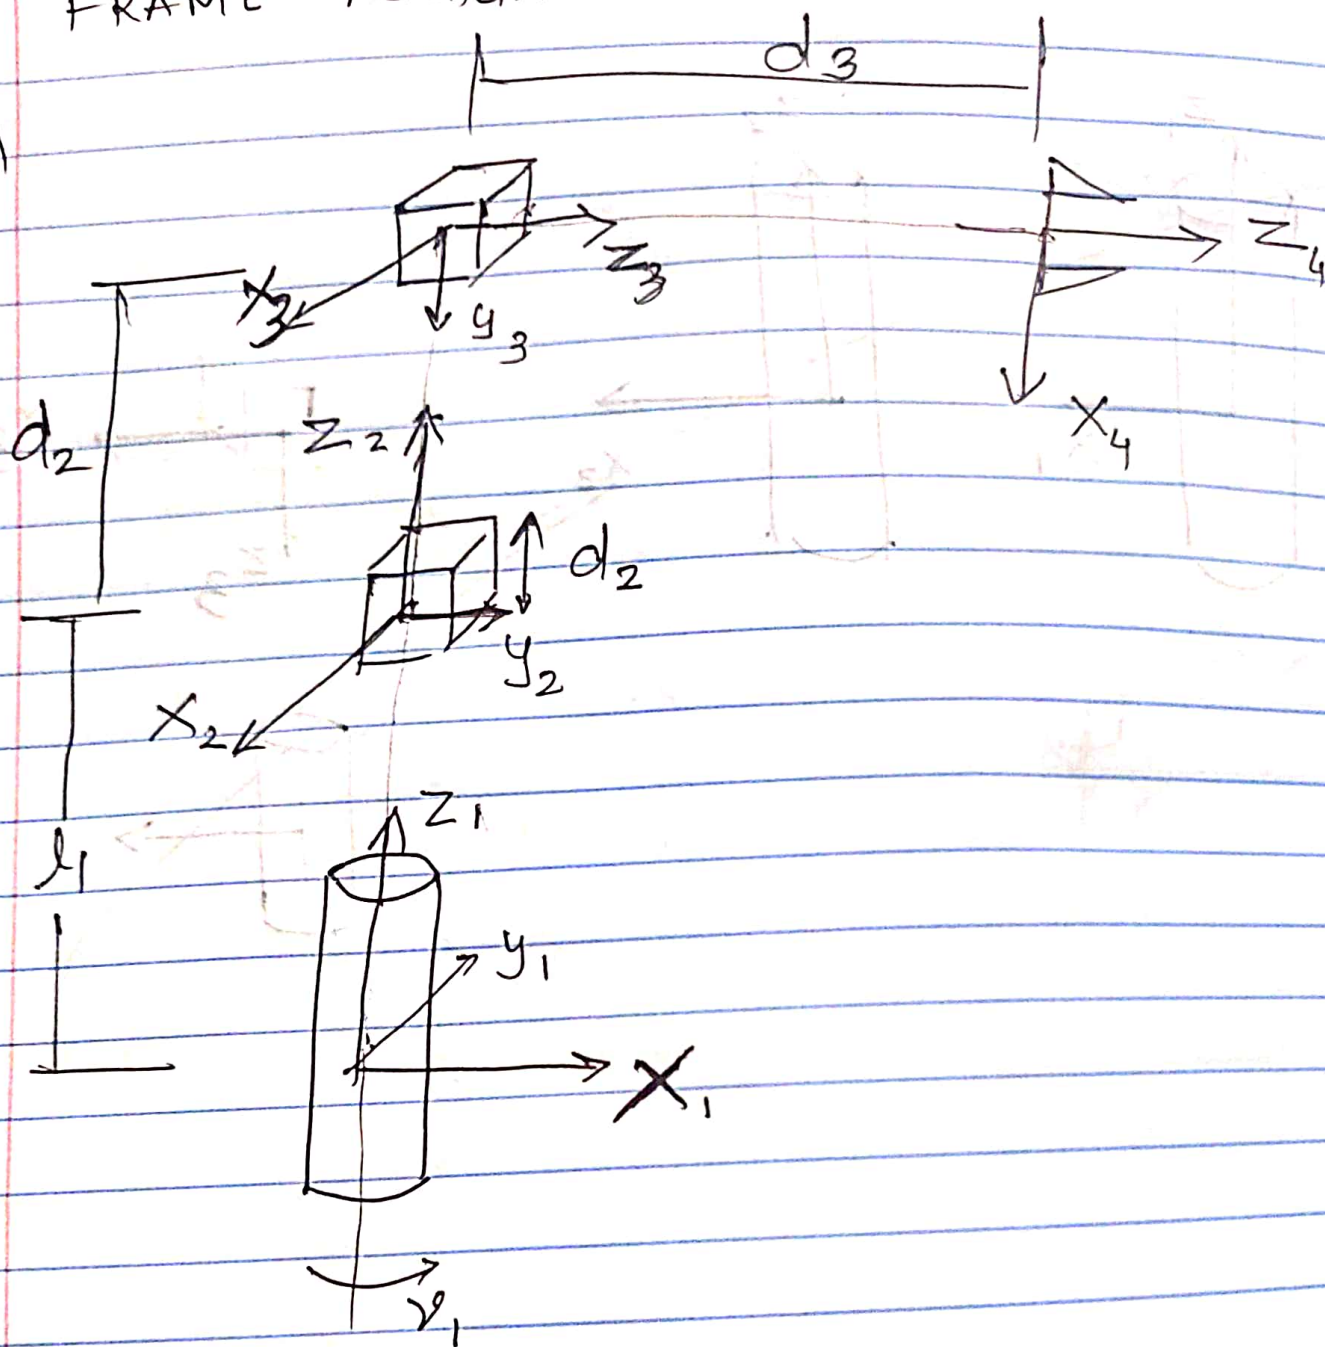 FRAME
d3
Z3
Z4
X3
y3
Z2
X4
d2
d2
y2
X2
Z1
l1
y1
X1
v1